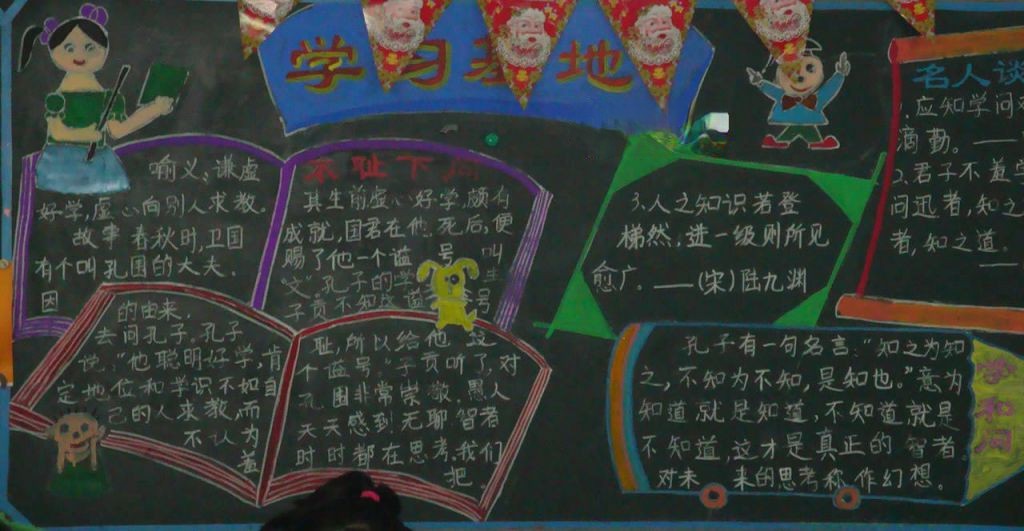 学习基地
不耻下问
喻义:谦虚
好学,虚心向别人求教.
故事 春秋时,卫国
有个叫孔圉的大夫.
因
其生前虚心好学,颇有
成就,国君在他 死后,便
赐了他一个谥 号 叫
"文".孔子的学 生
子贡不知 谥 号
的由来.
去问孔子.孔子
说:"他聪明好学,肯
定地位和学识不如自
己的人求教,而
不认为
羞
耻,所以给他 这
个谥号."子贡听了,对
孔圉非常崇敬.愚人
天天感到无聊 智者
时时都在思考.我们
把
3.人之知识若登
梯然,进一级则所见
愈广。——(宋)陆九渊
名人谈
1.应知学问
滴勤。——
2.君子不羞学
问迅者,知之
者,知之道.
——
孔子有一句名言:"知之为知
之,不知为不知,是知也."意为
知道就是知道,不知道就是
不知道,这才是真正的 智者
对未 来的思考称作幻想。
学和问